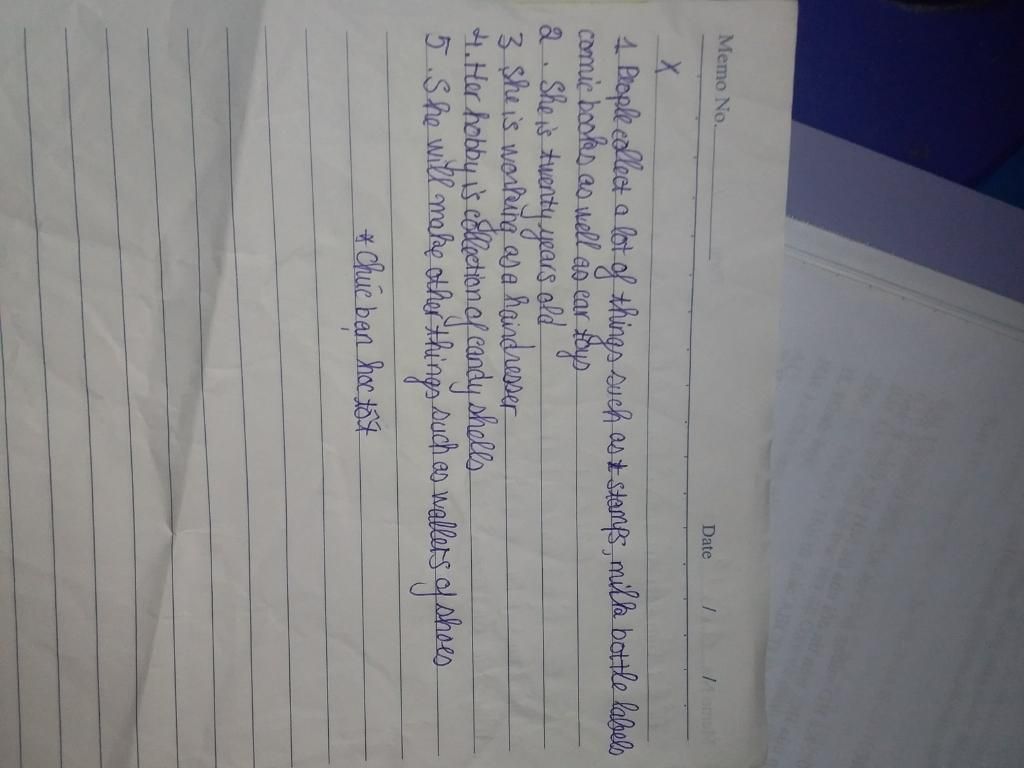 Memo No.
Date / /
X
1. People collect a lot of things such as stamps, milk bottle labels
comic books as well as car toys
2. She is twenty years old
3 She is working as a haindresser
4. Her hobby is collection of candy shells
5. She will make other things such as wallets of shoes
* chúc bạn học tốt